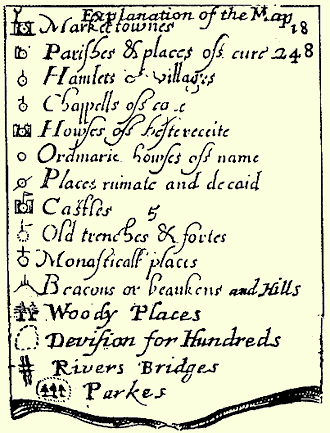 Explanation of the Map
Market townes 18
Parishes & places off cure 248
Hamlets or Villages
Chappells off ease
Howses off
Ordinarie howses off name
Places ruinate and decaid
Castles 5
Old trenches & fortes
Monasticall places
Beacons or beaukens and Hills
Woody Places
Devision for Hundreds
Rivers Bridges
Parkes